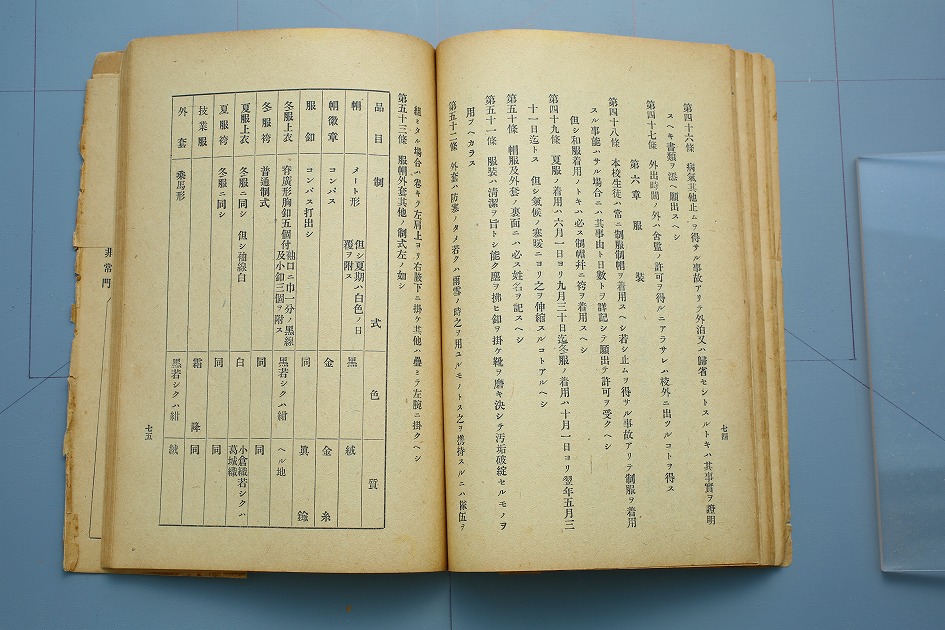 第四十六條　病氣其他止ムヲ得サル事故アリテ外泊又ハ歸省セントスルトキハ其事實ヲ證明
スヘキ書類ヲ添ヘ願出スヘシ
第四十七條　外出時間ノ外ハ舍監ノ許可ヲ得ルニアラサレハ校外ニ出ツルコトヲ得ス
第六章　服裝
第四十八條　本校生徒ハ常ニ制服制帽ヲ着用スヘシ若シ止ムヲ得サル事故アリテ制服ヲ着用
スル事能ハサル場合ニハ其事由ト日數トヲ詳記シテ願出テ許可ヲ受クヘシ
但シ和服着用ノトキハ必ス制帽幷ニ袴ヲ着用スヘシ
第四十九條　夏服ノ着用ハ六月一日ヨリ九月三十日迄冬服ノ着用ハ十月一日ヨリ翌年五月三
十一日迄トス　但シ氣候ノ寒暖ニヨリ之ヲ伸縮スルコトアルヘシ
第五十條　帽服及外套ノ裏面ニハ必ス姓名ヲ記スヘシ
第五十一條　服裝ハ淸潔ヲ旨トシ能ク塵ヲ拂ヒ釦ヲ掛ケ靴ヲ磨キ決シテ汚垢破綻セルモノヲ
用フヘカラス
第五十二條　外套ハ防寒ノタメ若クハ雨雪ノ時之ヲ用ユルモノトス之ヲ携持スルニハ隊伍ヲ
七四
組ミタル場合ハ卷キテ左肩上ヨリ右腋下ニ掛ケ其他ハ疊ミテ左腕ニ掛クヘシ
第五十三條　服帽外套其他ノ制式左ノ如シ
品目　制式　色　質
帽　メート形　但シ夏期ハ白色ノ日覆ヲ附ス　黑　絨
帽徽章　コンパス　金　金糸
服釦　コンパス打出シ　同　眞鍮
冬服上衣　脊廣形胸釦五個付袖口ニ巾一分ノ黑線及小釦三個ヲ附ス　黑若シクハ紺　ヘル地
冬服袴　普通制式　同　同
夏服上衣　冬服ニ同シ　但シ袖線白　白　小倉織若シクハ葛城織
夏服袴　冬服ニ同シ　同　同
技業服　霜降　同
外套　乘馬形　黑若シクハ紺　絨
七五
非常門